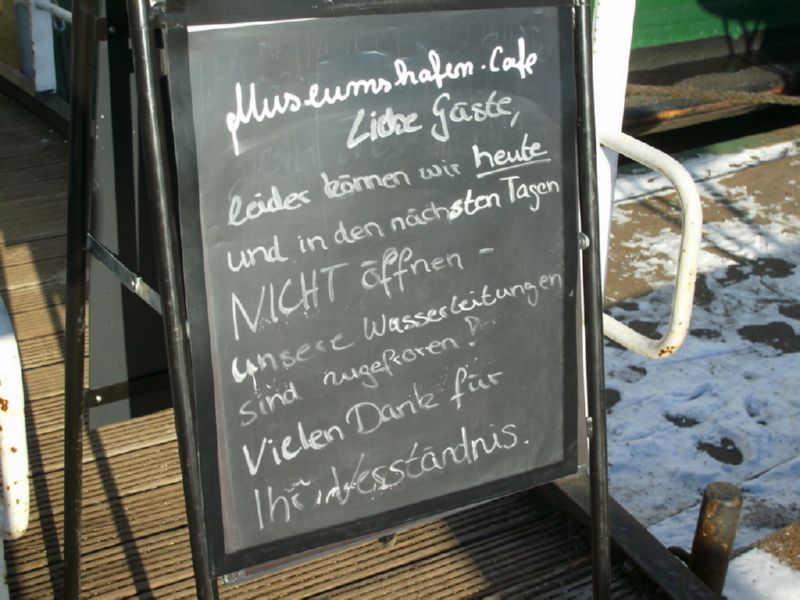 Museumshafen-Cafe
Liebe Gäste,
leider können wir heute
und in den nächsten Tagen
NICHT öffnen -
unsere Wasserleitungen
sind zugefroren!
Vielen Dank für
Ihr Verständnis.